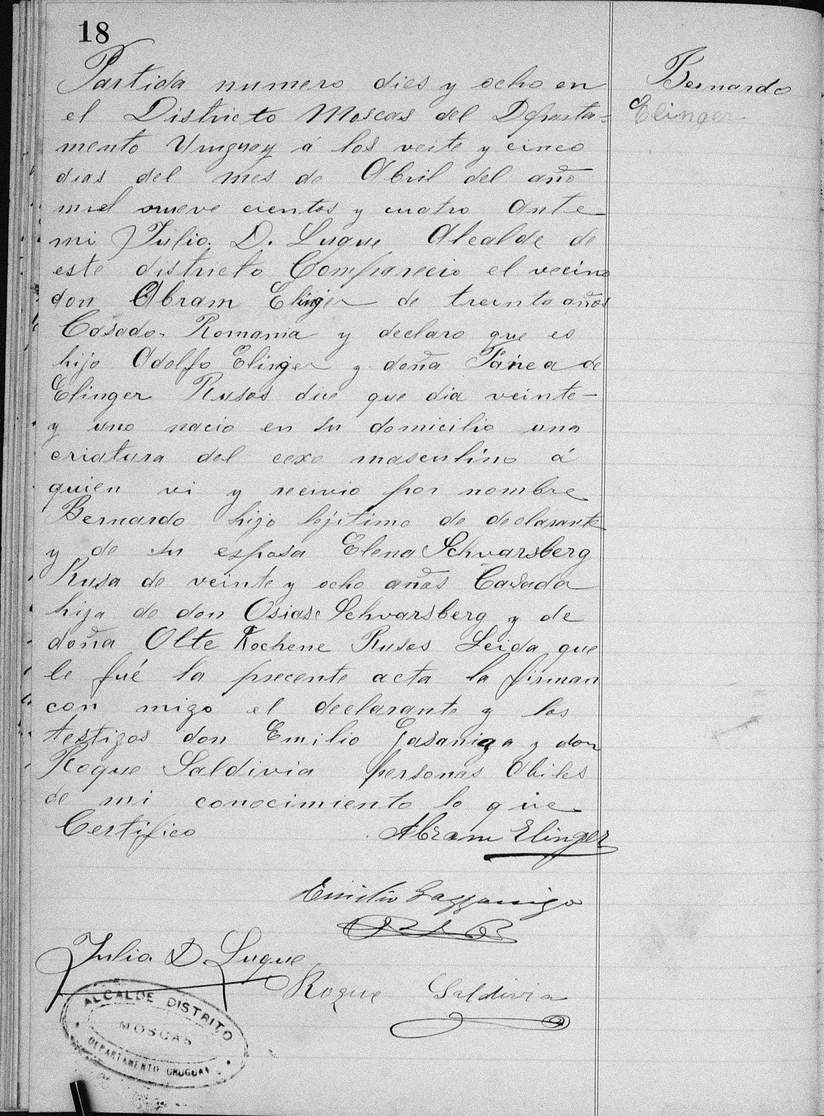 18
Bernardo
Elinger
Partida numero dies y ocho en
el Districto Moscas del Departa=
mento Uruguay á los veite y cinco
dias del mes de Abril del año
mil nueve cientos y cuatro ante
mi Julio D. Luque Alcalde de
este districto Comparecio el vecino
don Abram Elinger de treinta años
Casado. Romania y declaro que es
hijo Adolfo Elinger y doña de
Elinger Rusos dice que dia veinte-
y uno nacio en su domicilio una
criatura del cexo masculino á
quien vi y recivio por nombre
Bernardo hijo lejitimo de declarante
y de su esposa Elena Schvarsberg
Rusa de veinte y ocho años Casada
hija de don Osias Schvarsberg y de
doña Olte Kochene Rusos Leida que
le fué la precente acta la firman
con migo el declarante y los
testigos don Emilio Gasaniga y don
Roque Saldivia personas Abiles
de mi conocimiento lo que
Certifico
Abram Elinger
Emilio Gazzaniga
Julio D. Luque
Roque Saldivia
ALCALDE DISTRITO
MOSCAS
DEPARTAMENTO URUGUAY